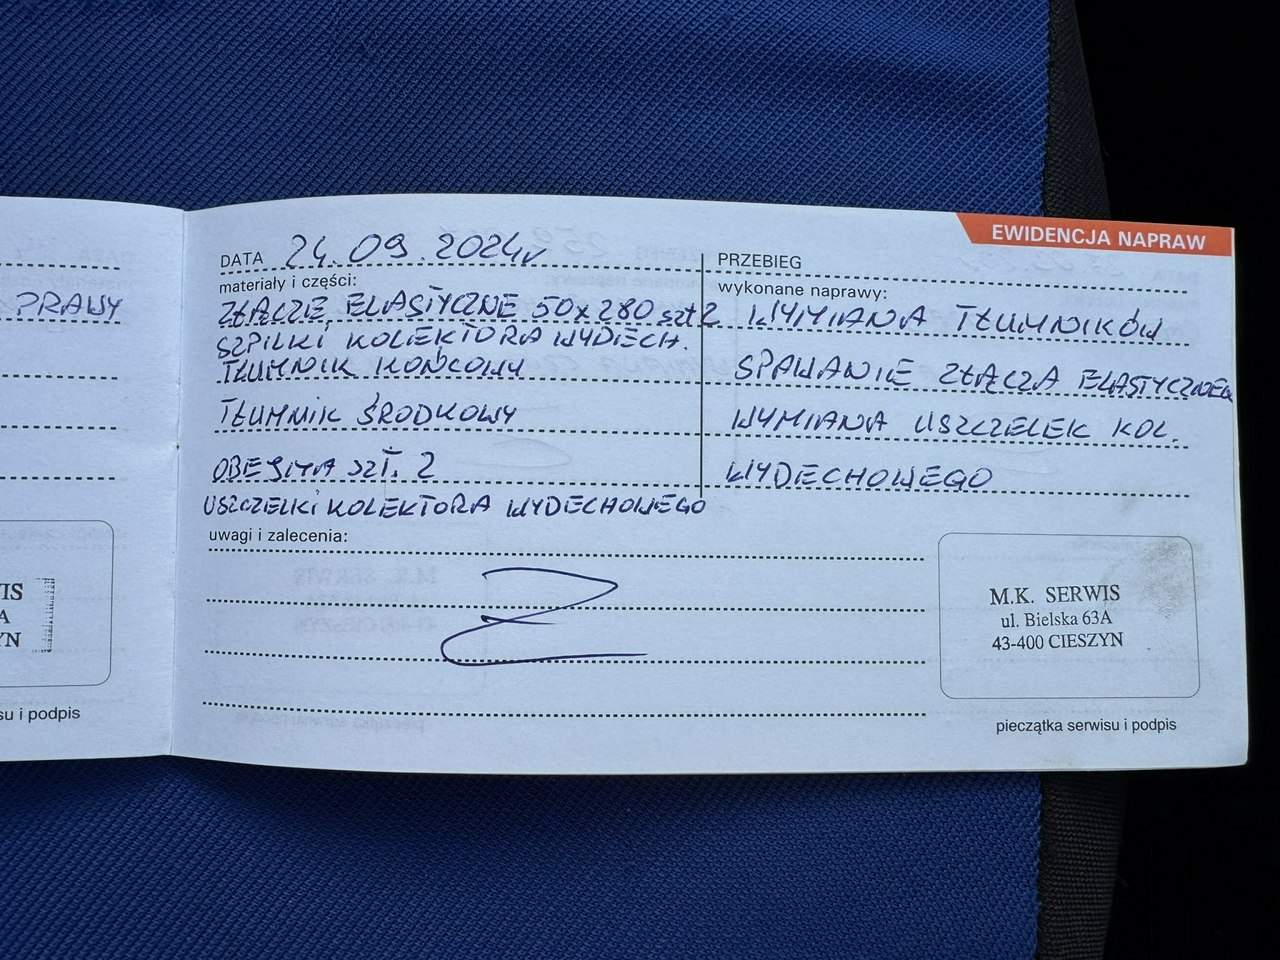 EWIDENCJA NAPRAW
DATA 24.09.2024r
materiały i części:
ZŁĄCZE ELASTYCZNE 50x280 szt 2
SZPILKI KOLEKTORA WYDECH.
TŁUMNIK KOŃCOWY
TŁUMNIK ŚRODKOWY
OBEJMA SZT. 2
USZCZELKI KOLEKTORA WYDECHOWEGO
PRZEBIEG
wykonane naprawy:
WYMIANA TŁUMNIKÓW
SPAWANIE ZŁĄCZA ELASTYCZNEGO
WYMIANA USZCZELEK KOL.
WYDECHOWEGO
uwagi i zalecenia:
M.K. SERWIS
ul. Bielska 63A
43-400 CIESZYN
pieczątka serwisu i podpis
PRAWY
IS
A
YN
su i podpis